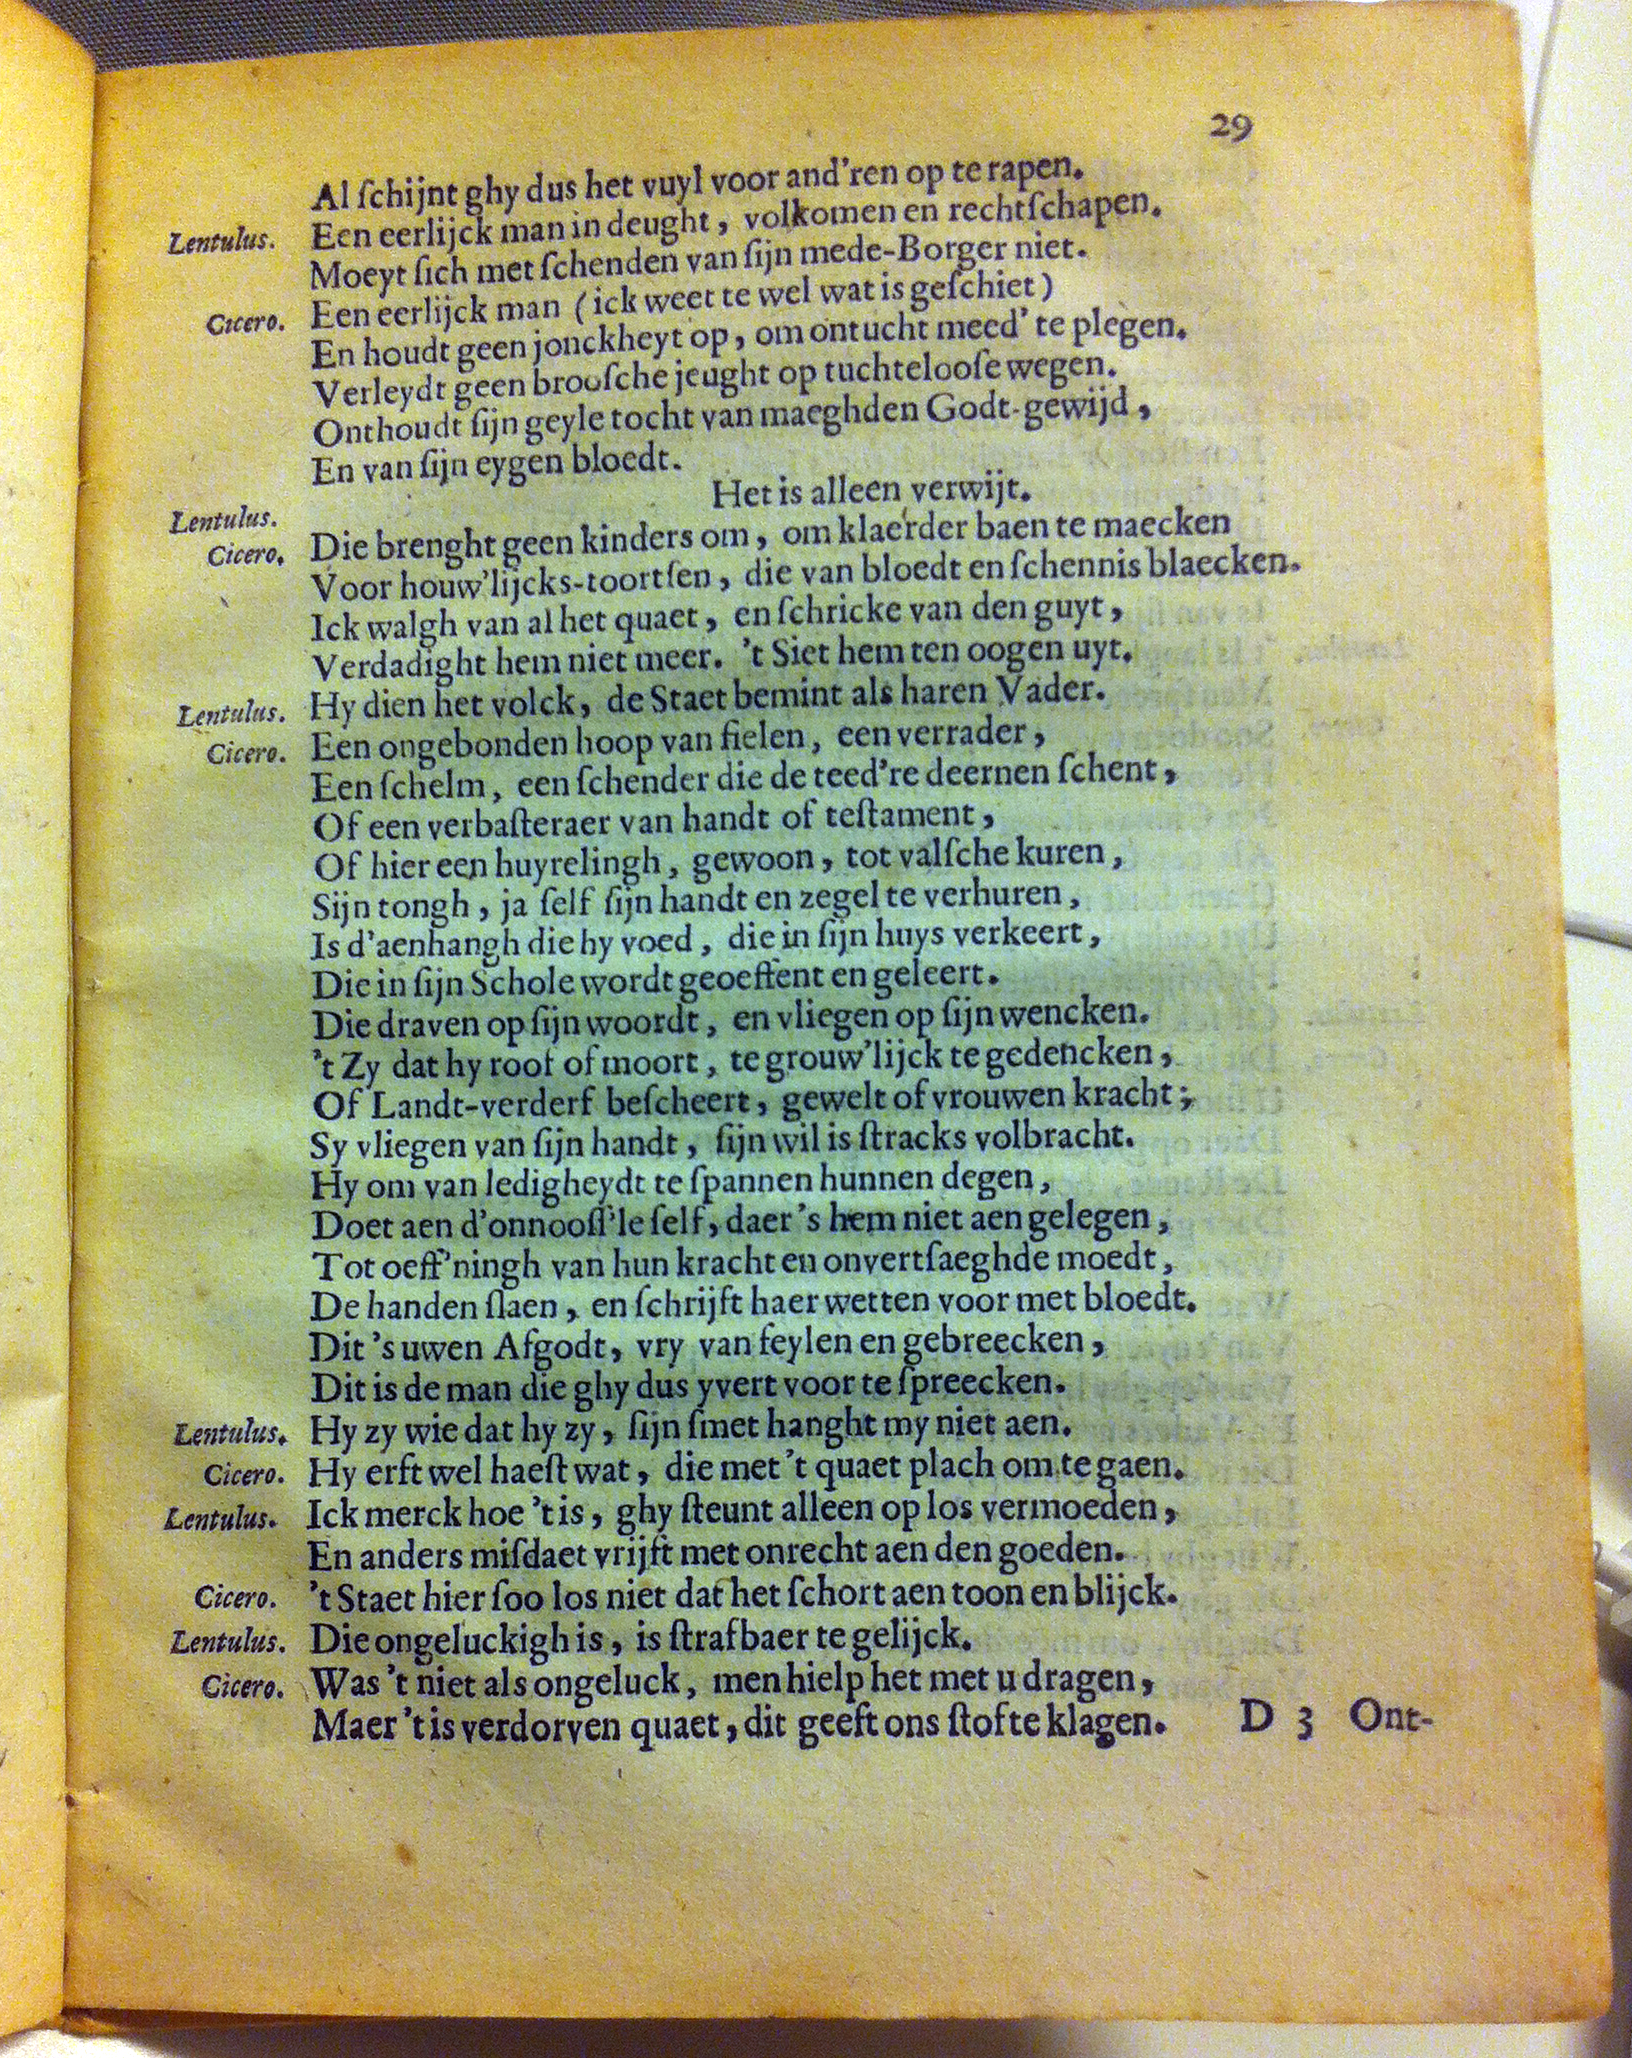 29
Al ſchijnt ghy dus het vuyl voor and'ren op te rapen.
Lentulus. Een eerlijck man in deught, volkomen en rechtſchapen.
Moeyt ſich met ſchenden van ſijn mede-Borger niet.
Cicero. Een eerlijck man (ick weet te wel wat is geſchiet)
En houdt geen jonckheyt op, om ontucht meed' te plegen.
Verleydt geen brooſche jeught op tuchtelooſe wegen.
Onthoudt ſijn geyle tocht van maeghden Godt-gewijd,
En van ſijn eygen bloedt.
Lentulus. Het is alleen verwijt.
Cicero. Die brenght geen kinders om, om klaerder baen te maecken
Voor houw'lijcks-toortſen, die van bloedt en ſchennis blaecken.
Ick walgh van al het quaet, en ſchricke van den guyt,
Verdadight hem niet meer. 't Siet hem ten oogen uyt.
Lentulus. Hy dien het volck, de Staet bemint als haren Vader.
Cicero. Een ongebonden hoop van fielen, een verrader,
Een ſchelm, een ſchender die de teed're deernen ſchent,
Of een verbaſteraer van handt of teſtament,
Of hier een huyrelingh, gewoon, tot valſche kuren,
Sijn tongh, ja ſelf ſijn handt en zegel te verhuren,
Is d'aenhangh die hy voed, die in ſijn huys verkeert,
Die in ſijn Schole wordt geoeffent en geleert.
Die draven op ſijn woordt, en vliegen op ſijn wencken.
't Zy dat hy roof of moort, te grouw'lijck te gedencken,
Of Landt-verderf beſcheert, gewelt of vrouwen kracht;
Sy vliegen van ſijn handt, ſijn wil is ſtracks volbracht.
Hy om van ledigheydt te ſpannen hunnen degen,
Doet aen d'onnooſſ'le ſelf, daer's hem niet aen gelegen,
Tot oeff'ningh van hun kracht en onvertſaeghde moedt,
De handen ſlaen, en ſchrijft haer wetten voor met bloedt.
Dit 's uwen Afgodt, vry van feylen en gebreecken,
Dit is de man die ghy dus yvert voor te ſpreecken.
Lentulus. Hy zy wie dat hy zy, ſijn ſmet hanght my niet aen.
Cicero. Hy erft wel haeſt wat, die met 't quaet plach om te gaen.
Lentulus. Ick merck hoe 't is, ghy ſteunt alleen op los vermoeden,
En anders miſdaet vrijft met onrecht aen den goeden.
Cicero. 't Staet hier ſoo los niet dat het ſchort aen toon en blijck.
Lentulus. Die ongeluckigh is, is ſtrafbaer te gelijck.
Cicero. Was 't niet als ongeluck, men hielp het met u dragen,
Maer 't is verdorven quaet, dit geeft ons ſtof te klagen.
D 3 Ont-